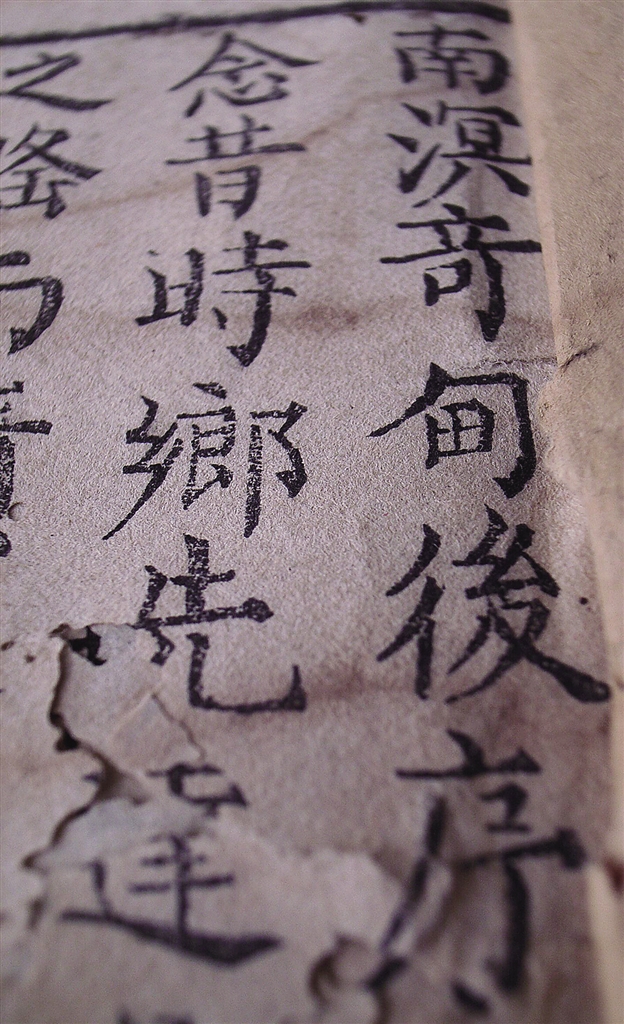 南溟竒甸後序
念昔時鄉先達
之隆